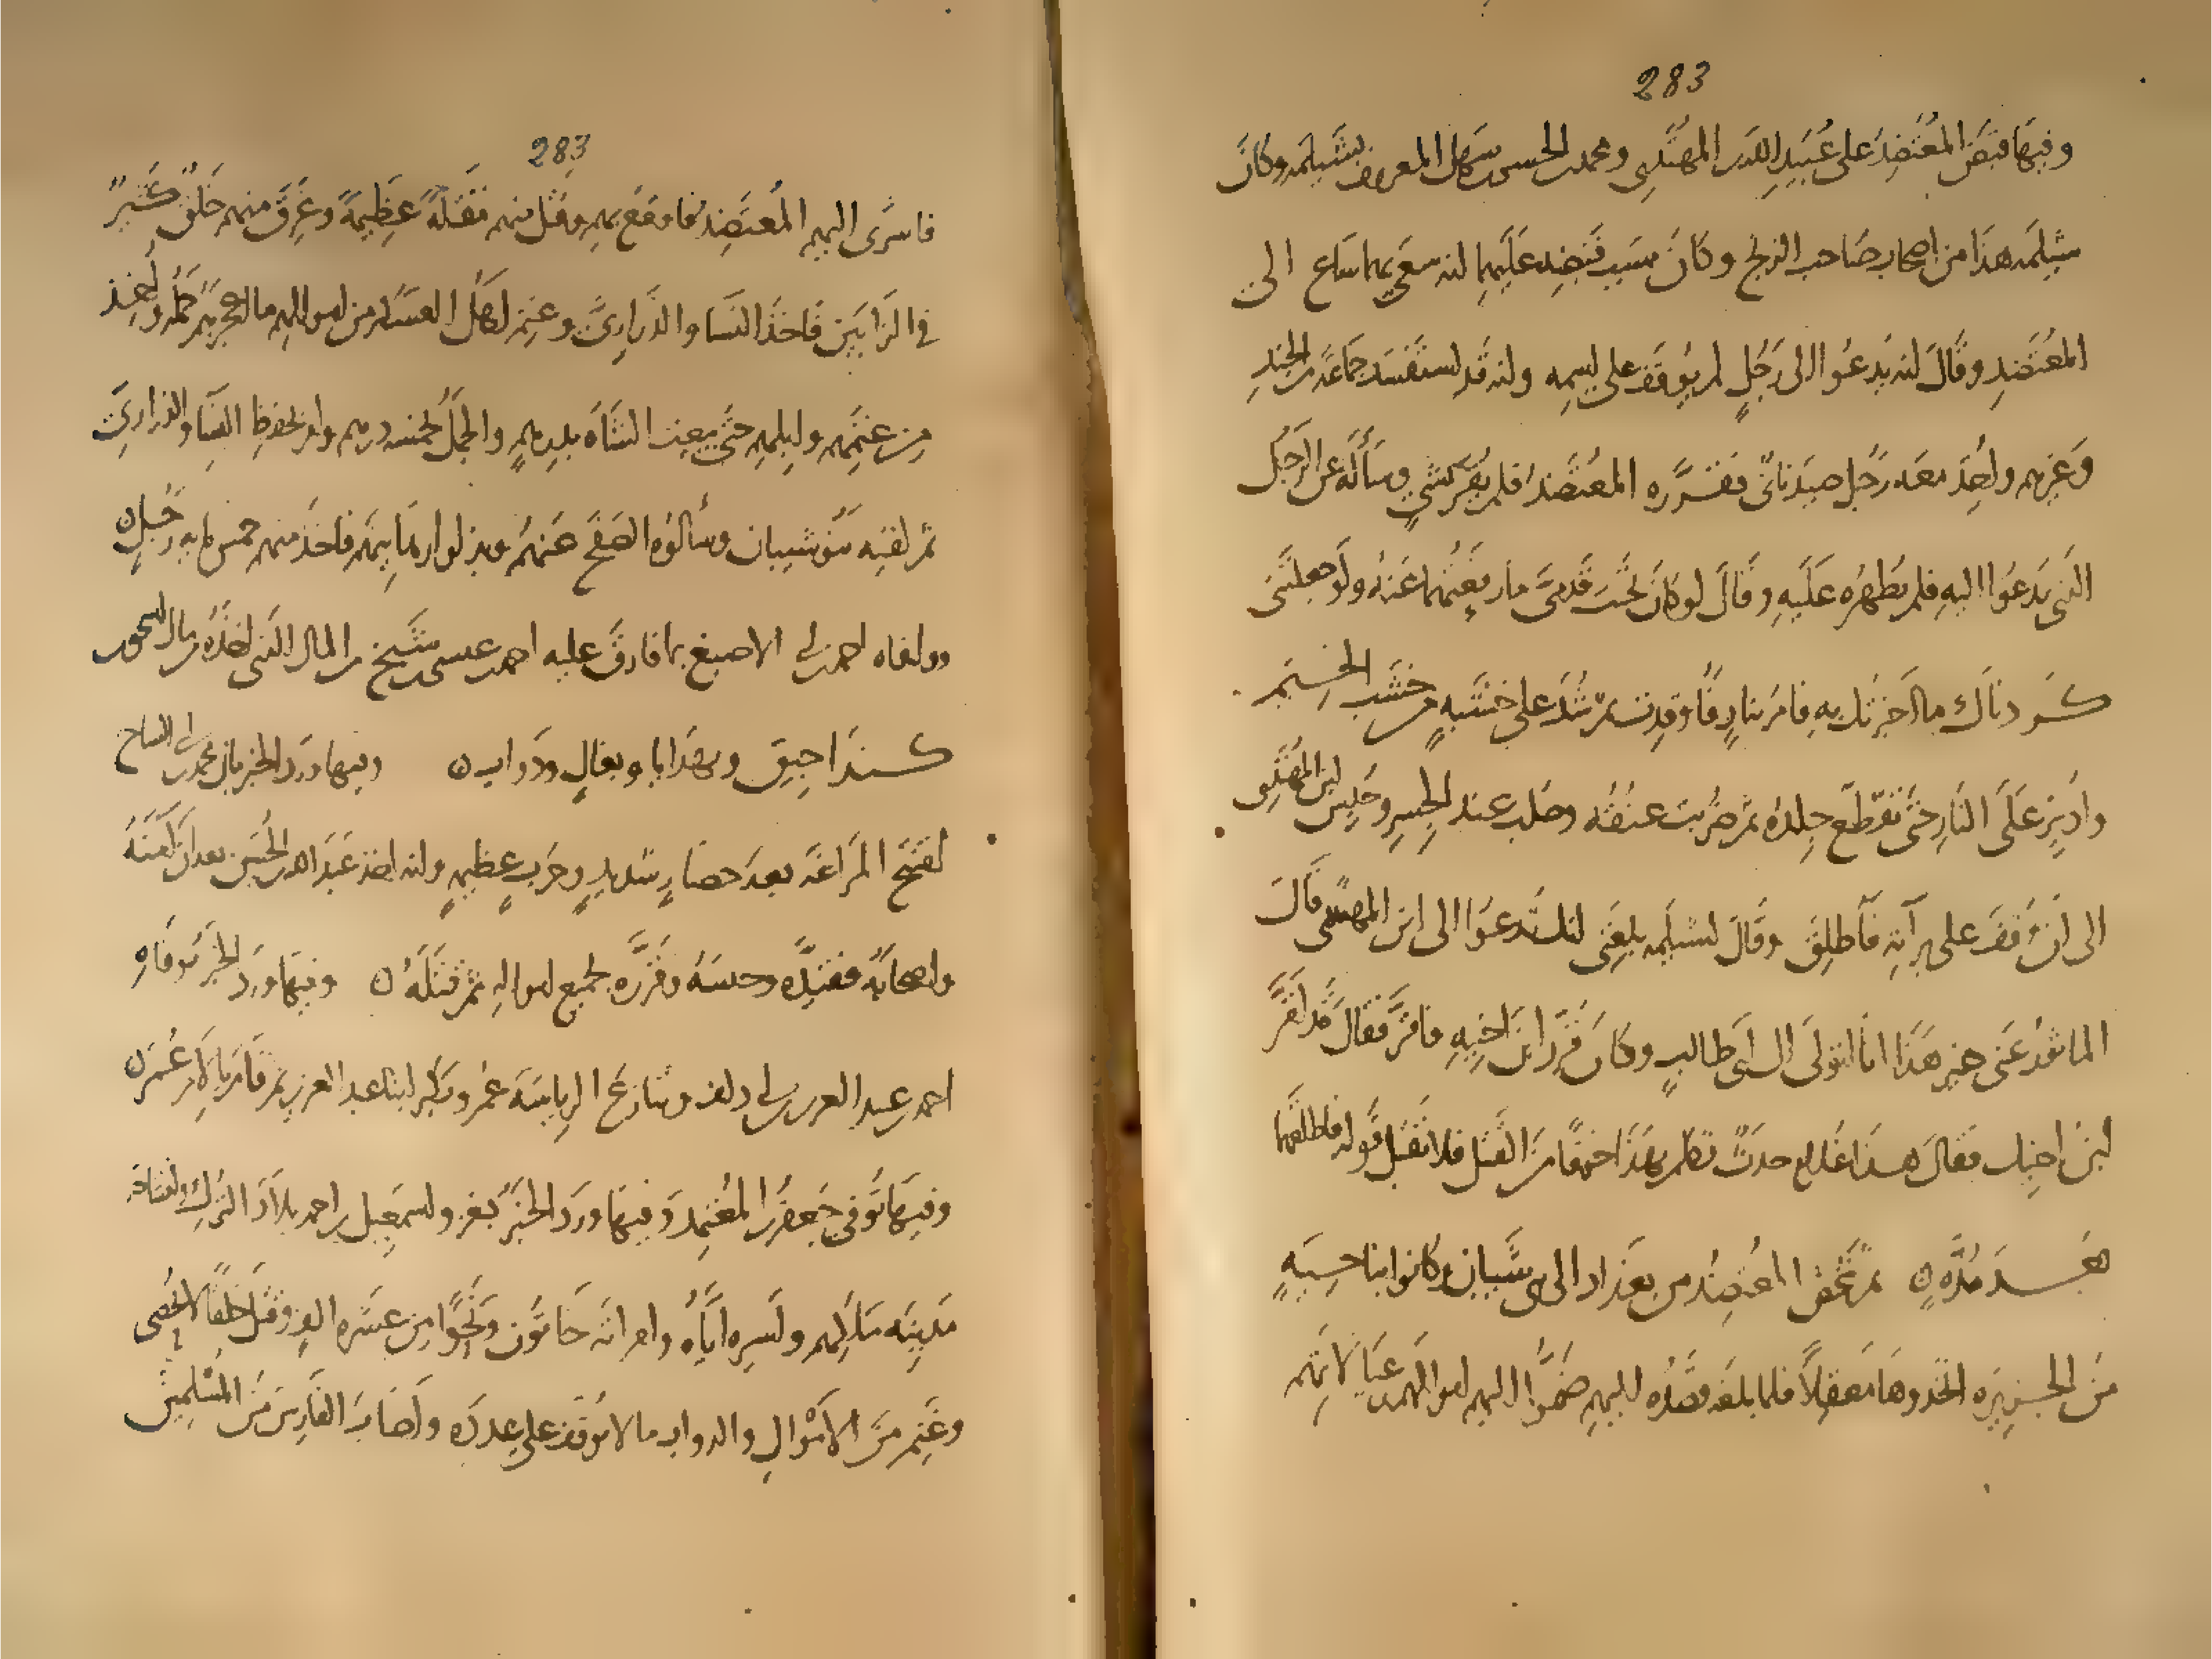 283
وفيها قبض المعتضد على عبيد الله بن المهتدى ومحمد بن الحسن بن سهل المعروف بشيلمه وكان
شيلمه هذا من اصحاب صاحب الزنج وكان سبب قبضه عليهما انه سعى بهما ساع الى
المعتضد وقال انه يدعوا الى رجل لم يوقف على اسمه وانه قد استفسد جماعة من الجند
وغيرهم واخذ معه رجل صيدنانى فقرره المعتضد فلم يقر بشىء وسأله عن الرجل
الذى يدعوا اليه فلم يظهره عليه وقال لو كان تحت قدمى ما رفعتهما عنه ولو جعلتنى
كردناك ما اخبرتك به فامر بنار فاوقدت ثم شد على خشبة من خشب الخيم
وادير على النار حتى تقطع جلده ثم ضربت عنقه وصلب عند الجسر وحبس ابن المهتدى
الى ان وقف على برآته فاطلق وقال لشيلمه بلغنى انك تدعوا الى ابن المهتدى قال
الماثور عنى غير هذا انا اتولى آل ابى طالب وكان قرر ابن اخيه فاقر فقال قد اقر
ابن اخيك فقال هذا غلام حدث تكلم بهذا خوفا من القتل فلا تقبل قوله فاطلقهما
بعد مدة ن ثم شخص المعتضد من بغداد الى بنى شيبان وكانوا بناحية
من الجزيرة اتخذوها معقلا فلما بلغهم قصده اليهم ضموا اليهم اموالهم وعيالاتهم
283
فاسرى اليهم المعتضد فاوقع بهم وقتل منهم مقتلة عظيمة وغرق منهم خلق كثير
فى الزابين فاخذ النسا والذرارى وغنم اهل العسكر من اموالهم ما اعجزهم حمله واخذ
من غنمهم وابلهم حتى بيعت الشاة بدرهم والجمل بخمسة دراهم وامر بحفظ النسا والذرارى
ثم لقيه بنو شيبان وسألوه الصفح عنهم وبذلوا رهاينهم فاخذ منهم خمس ماية رجل ن
ووافاه احمد بن ابى الاصبغ بما فارق عليه احمد بن عيسى بن شيخ من المال الذى اخذه من مال اسحق بن
كنداجيق وبهدايا وبغال ودواب ن وفيها ورد الخبر بان محمد بن ابى الساج
افتتح المراغة بعد حصار شديد وحرب عظيم وانه اخذ عبد الله بن الحسين بعد ان آمنه
واصحابه فقيده وحبسه وقرره بجميع امواله ثم قتله ن وفيها ورد الخبر بوفاه
احمد بن عبد العزيز بن ابى دلف وتنازع الرياسة عمر وبكر ابنا عبد العزيز ثم قام بالامر عمر ن
وفيها توفى جعفر بن المعتمد وفيها ورد الخبر بغزو اسمعيل بن احمد بلاد الترك وافتتاحه
مدينة ملكهم واسره اباه وامراته خاتون ونحوا من عشرة الف وقتل خلقا لا يحصى
وغنم من الاموال والدواب ما لا يوقف على عدده واصاب الفارس من المسلمين